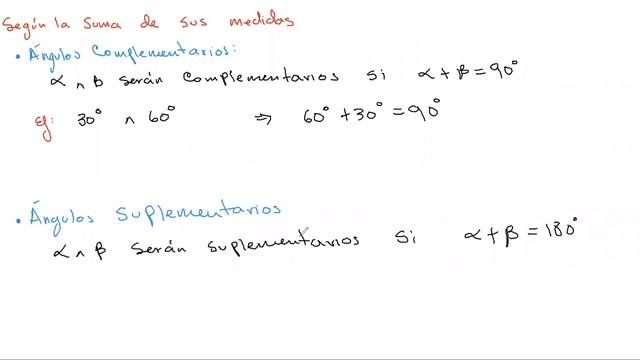 Según la suma de sus medidas
• Ángulos Complementarios:
α ∧ β serán complementarios si α + β = 90°
Ej: 30° ∧ 60° ⇒ 60° + 30° = 90°
• Ángulos suplementarios
α ∧ β serán suplementarios si α + β = 180°